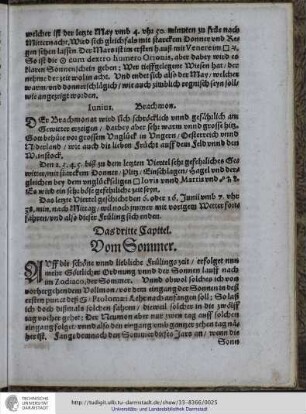 welcher ist der letzte May vmb 4. vhr 50. minuten zu früe nach
Mitternacht, Wird sich gleichsfals mit starckem Donner vnd Re
gen sehen lassen Der Mars ist im ersten hauß mit Venere im
So ist die ☉ cum dextro humero Orionis, aber dabey wird es
klaren Sonnenschein geben; Wer diesen
nehme der zeit woln acht. Vnd endet sich also der May, welcher
warm vnd donnerschlägig / wie auch zimblich regnisch seyn / soll
wie angezeigt worden.
Iunius. Brachmon.
DEr Brachmonat wird sich schröcklich vnnd gefährlich am
Gewitter erzeigen / darbey aber sehr warm vnnd grosse hitz.
Gott behüte vor grossem Vnglück in Vngern / Oesterreich vnnd
Niderland / wie auch die lieben Frücht auff dem Feld vnnd den
Weinstock.
Den 2. 3. 4. 5. biß zu dem letzten Viertel sehr gefehrliches Ge
witter, mit starckem Donner / Plitz / Einschlagen / Hagel vnd der-
gleichen bey dem vnglückseligen □ Iovis vnnd Martis vnd
Es wird ein sehr böse gefehrliche zeit seyn.
Das letzte Viertel geschicht den 6. oder 16. Junii vmb 7. vhr
38. min. nach Mittag, wil noch immer mit vorigem Wetter fort
fahren, vnd also dieser Früling sich enden.
Das dritte Capittel.
Vom Sommer.
AUff die schöne vnnd liebliche Frülings zeit / erfolget nun
nach Göttlicher Ordnung vnnd der Sonnen lauff nach
im Zodiaco, der Sommer. Vnnd obwol solches ich von
vorhergehendem Vollmon oder dem eingang der Sonnen in den
ersten punct deß ♋ Ptolomæi Lehr nach anfangen soll; So laß
ich doch dißmals solchen fahren / dieweil solcher in die zwölff
tag vorher gehet: Der Neumon aber nur zween tag auff solchen
eingang folget vnnd also den eingang vmb gantzer zehen tag nä
her ist. Fange demnach den Sommer dieses Jars an / wenn die
Sonn
http://tudigit.ulb.tu-darmstadt.de/show/33-4066/0025
Universitäts- und Landesbibliothek Darmstadt
TECHNISCHE
UNIVERSITÄT
DARMSTADT